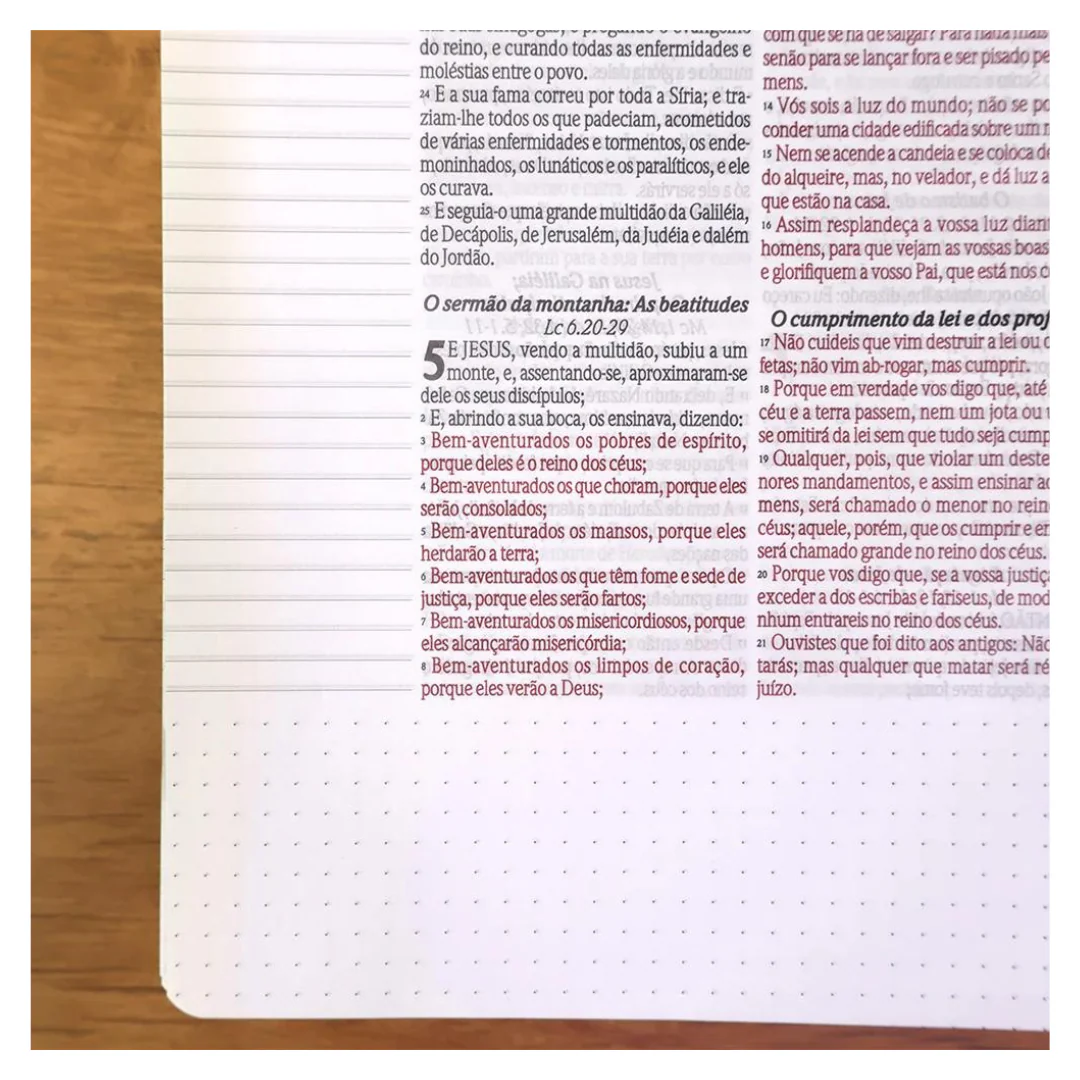 do reino, e curando todas as enfermidades e
moléstias entre o povo.
24 E a sua fama correu por toda a Síria; e tra-
ziam-lhe todos os que padeciam, acometidos
de várias enfermidades e tormentos, os ende-
moninhados, os lunáticos e os paralíticos, e ele
os curava.
25 E seguia-o uma grande multidão da Galiléia,
de Decápolis, de Jerusalém, da Judéia e dalém
do Jordão.
O sermão da montanha: As beatitudes
Lc 6.20-29
5 E JESUS, vendo a multidão, subiu a um
monte, e, assentando-se, aproximaram-se
dele os seus discípulos;
2 E, abrindo a sua boca, os ensinava, dizendo:
3 Bem-aventurados os pobres de espírito,
porque deles é o reino dos céus;
4 Bem-aventurados os que choram, porque eles
serão consolados;
5 Bem-aventurados os mansos, porque eles
herdarão a terra;
6 Bem-aventurados os que têm fome e sede de
justiça, porque eles serão fartos;
7 Bem-aventurados os misericordiosos, porque
eles alcançarão misericórdia;
8 Bem-aventurados os limpos de coração,
porque eles verão a Deus;
com que se há de salgar? Para nada mais
senão para se lançar fora e ser pisado pe
mens.
14 Vós sois a luz do mundo; não se po
conder uma cidade edificada sobre um
15 Nem se acende a candeia e se coloca de
do alqueire, mas, no velador, e dá luz a
que estão na casa.
16 Assim resplandeça a vossa luz diant
homens, para que vejam as vossas boas
e glorifiquem a vosso Pai, que está nos c
O cumprimento da lei e dos prof
17 Não cuideis que vim destruir a lei ou
fetas; não vim ab-rogar, mas cumprir.
18 Porque em verdade vos digo que, até
céu e a terra passem, nem um jota ou
se omitirá da lei sem que tudo seja cump
19 Qualquer, pois, que violar um deste
nores mandamentos, e assim ensinar ao
mens, será chamado o menor no rein
céus; aquele, porém, que os cumprir e en
será chamado grande no reino dos céus.
20 Porque vos digo que, se a vossa justiç
exceder a dos escribas e fariseus, de mod
nhum entrareis no reino dos céus.
21 Ouvistes que foi dito aos antigos: Não
tarás; mas qualquer que matar será ré
juízo.